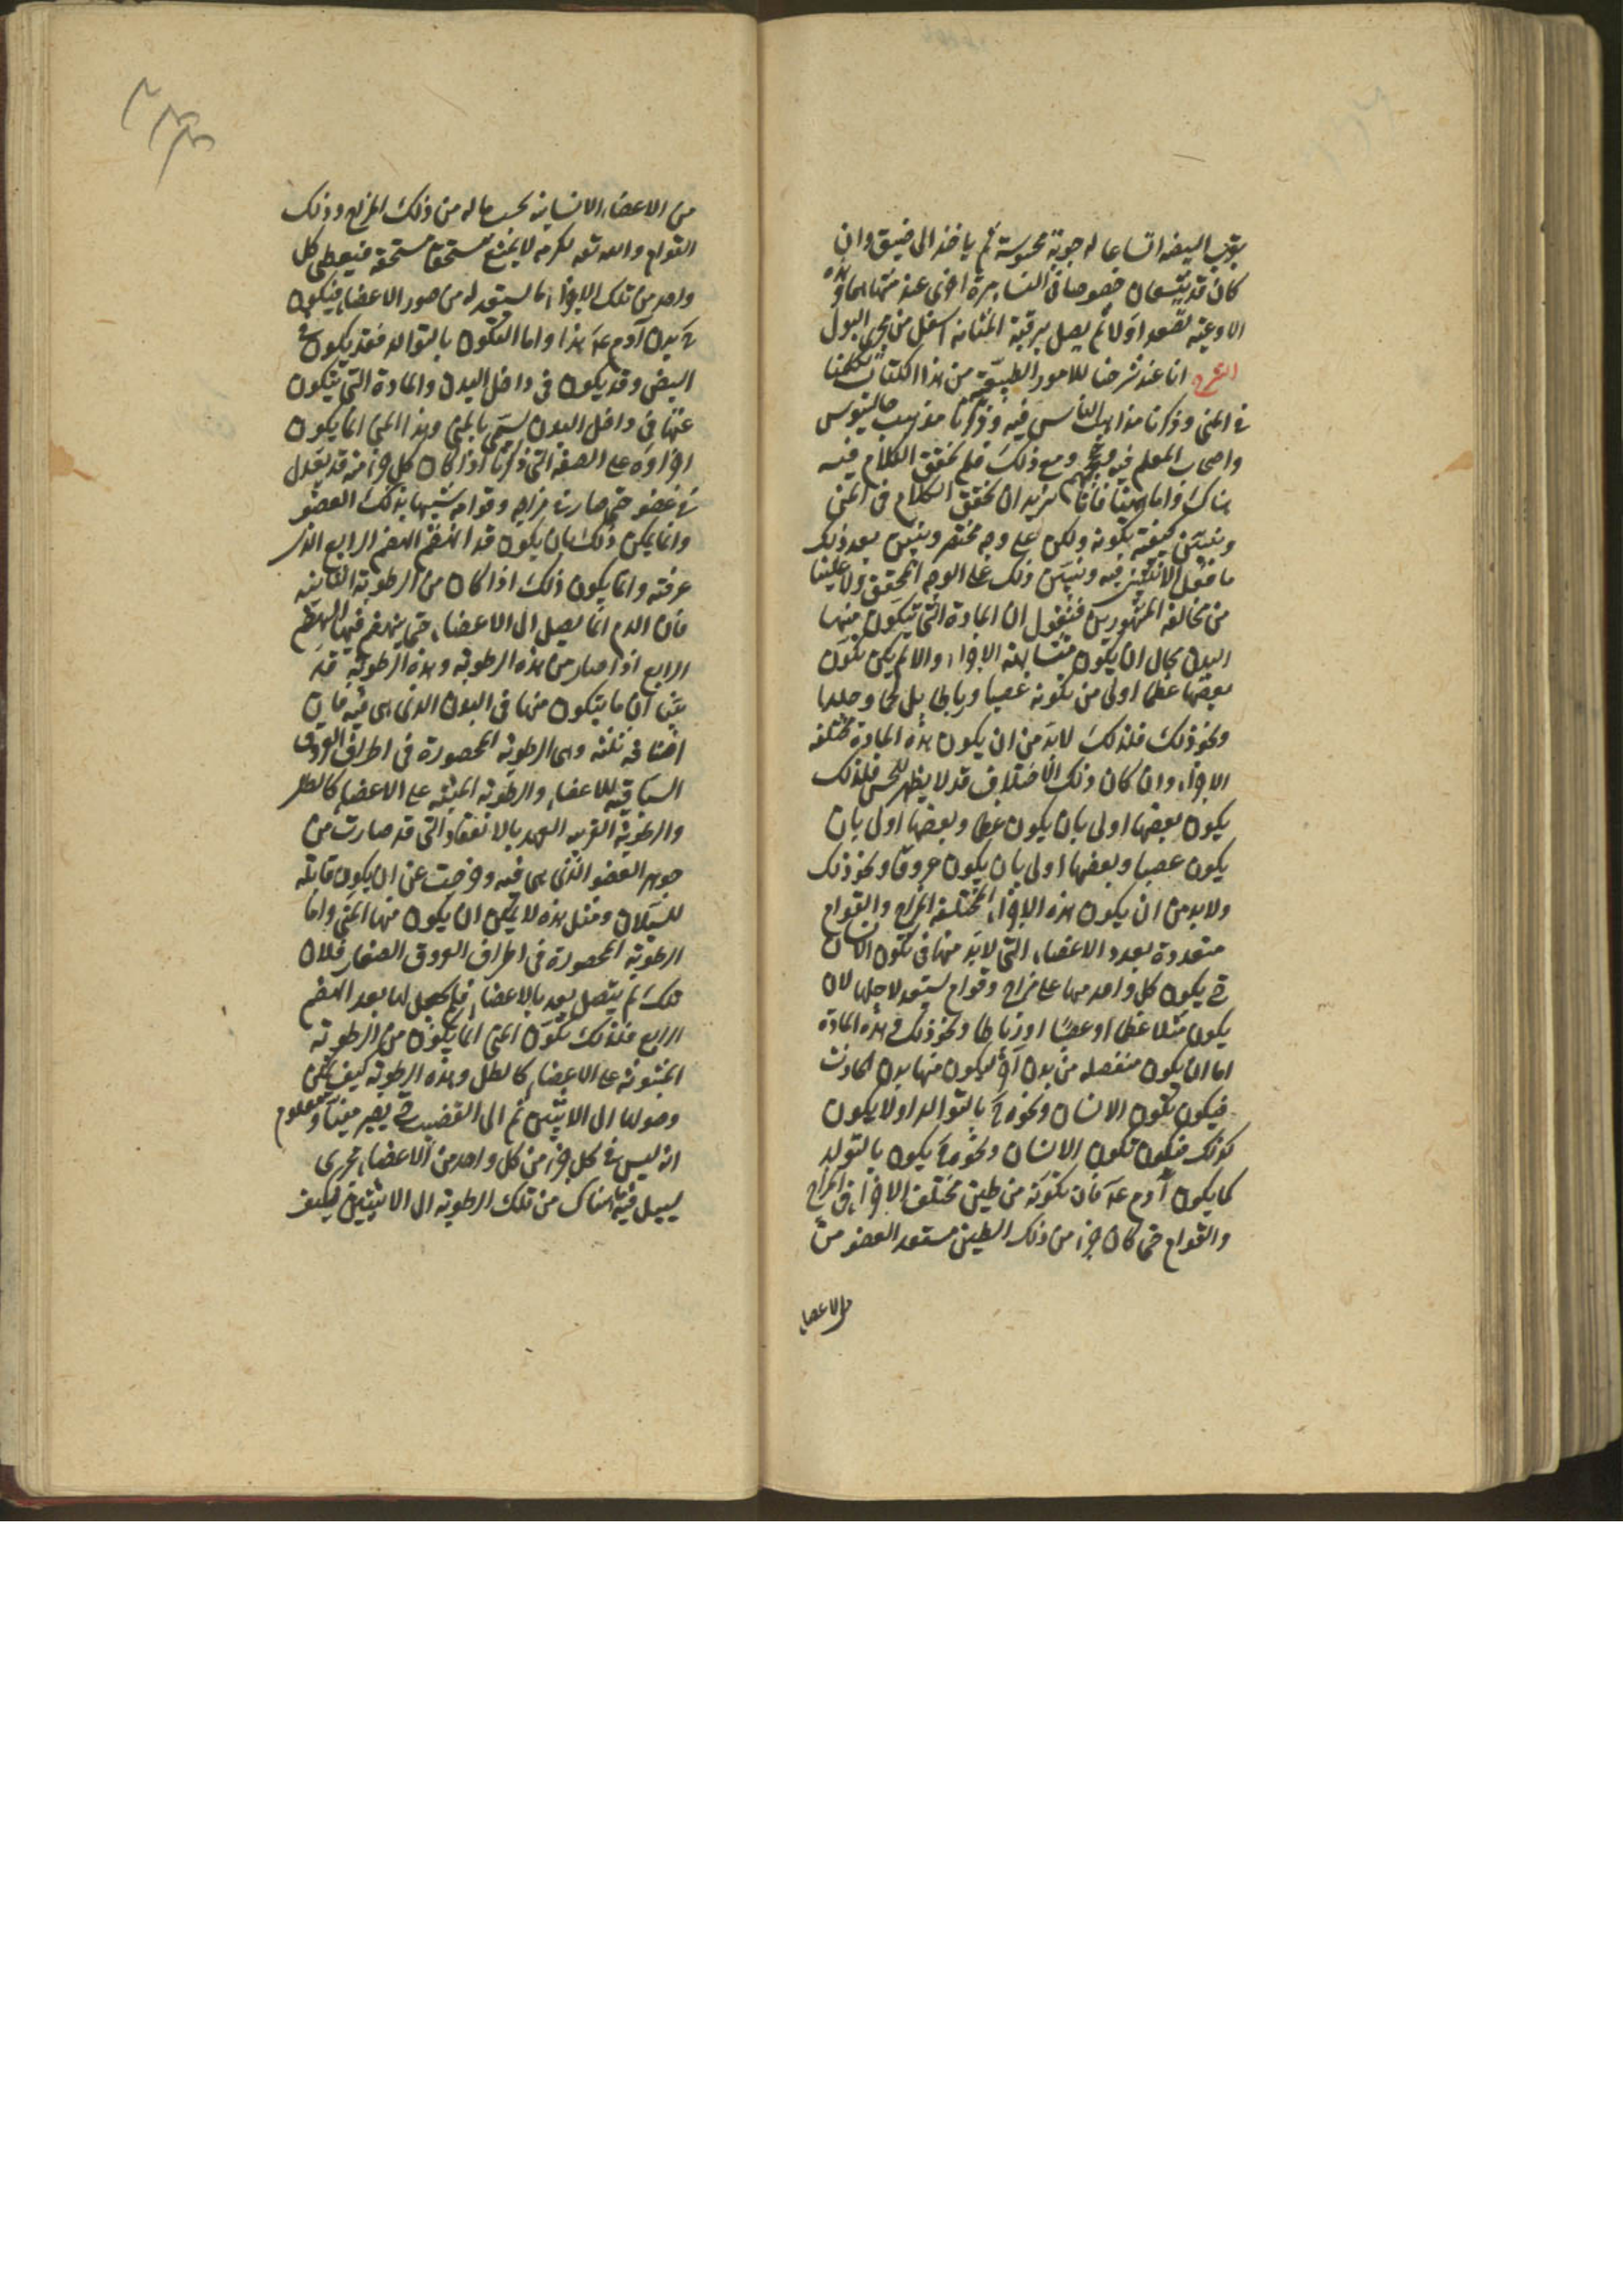 بقرب البيضه اتساعا له جوبة محسوسة ثم ياخذ الى ضيق وان
كان قد يتسعان خصوصا فى النساء مرة اخرى عند منتهاهما وهذه
الاوعيه تصعد اولا ثم يصل برقبة المثانه اسفل من مجرى البول
الشرح انا عند شرحنا للامور الطبيعية من هذا الكتاب تكلمنا
فى المنى وذكرنا مذاهب الناس فيه وذكرنا مذهب جالينوس
واصحاب المعلم فيه ومع ذلك فلم نحقق الكلام فيه
هناك واما ههنا فانا نريد ان نحقق الكلام فى المنى
ونبين كيفية تكونه ولكن على وجه مختصر ونبين بعد ذلك
ما فعل الانثيين فيه ونبين ذلك على الوجه المحقق ولا علينا
من مخالفة المشهورين فنقول ان المادة التى يتكون منها
البدن محال ان يكون متشابهة الاجزاء والا لم يكن تكون
بعضها عظما اولى من تكونه عصبا ورباطا بل لحما وجلدا
ونحو ذلك فلذلك لابد من ان يكون هذه المادة مختلفه
الاجزاء وان كان ذلك الاختلاف قد لا يظهر للحس فلذلك
يكون بعضها اولى بان يكون عظما وبعضها اولى بان
يكون عصبا وبعضها اولى بان يكون عروقا ونحو ذلك
ولابد من ان يكون هذه الاجزاء المختلفة المزاج والقوام
متعددة بعدد الاعضاء التى لابد منها فى تكون الانسان
حتى يكون كل واحد منها على مزاج وقوام يستعد لاجلها لان
يكون مثلا عظما او عصبا او رباطا ونحو ذلك وهذه المادة
اما ان يكون منفصله من بدن آخر ليكون منها بدن الحادث
فيكون تكون الانسان ونحوه بالتوالد اولا يكون
كذلك فيكون تكون الانسان ونحوه يكون بالتولد
كما يكون آدم عم فان تكونه من طين مختلف الاجزاء فى المزاج
والقوام حتى كان جزء من ذلك الطين مستعد العضو من
الاعضاء
من الاعضاء الانسانيه بحسب ماله من ذلك المزاج وذلك
القوام والله تعالى لكرمه لا يمنع مستحقا مستحقه فيعطى كل
واحد من تلك الاجزاء ما يستعد له من صور الاعضاء فيكون
بدن آدم عم هذا واما التكون بالتوالد فقد يكون فى
البيض وقد يكون فى داخل البدن والمادة التى يتكون
عنها فى داخل البدن يسمى بالمنى وهذا المنى انما يكون
اجزاؤه على الصفه التى ذكرنا اذا كان كل جزء منه قد تعدل
فى عضو حتى صار فى مزاجه وقوامه شبيها بذلك العضو
وانما يمكن ذلك بان يكون قد انهضم الهضم الرابع الذى
عرفته وانما يكون ذلك اذا كان من الرطوبة الثانيه
فان الدم انما يصل الى الاعضاء حتى ينهضم فيها الهضم
الرابع اذا صار من هذه الرطوبه وهذه الرطوبه قد
بينا ان ما يتكون منها فى البدن الذى هى فيه فان
اصنافه ثلثه وهى الرطوبه المحصورة فى اطراف العروق
الساقيه للاعضاء والرطوبه المنبثه على الاعضاء كالطل
والرطوبة القريبه العهد بالانعقاد التى قد صارت من
جوهر العضو الذى هى فيه وخرجت عن ان يكون قابله
للسيلان ومثل هذه لا يمكن ان يكون منها المنى واما
الرطوبة المحصورة فى اطراف العروق الصغار فلان
تلك لم يتصل بعد بالاعضاء فلم يحصل لها بعد الهضم
الرابع فلذلك تكون المنى انما يكون من الرطوبة
المبثوثه على الاعضاء كالطل وهذه الرطوبه كيف يمكن
وصولها الى الانثيين ثم الى القضيب حتى يصير منيا ومعلوم
انه ليس فى كل جزء من كل واحد من الاعضاء مجرى
يسيل فيه ما هناك من تلك الرطوبة الى الانثيين فكيف